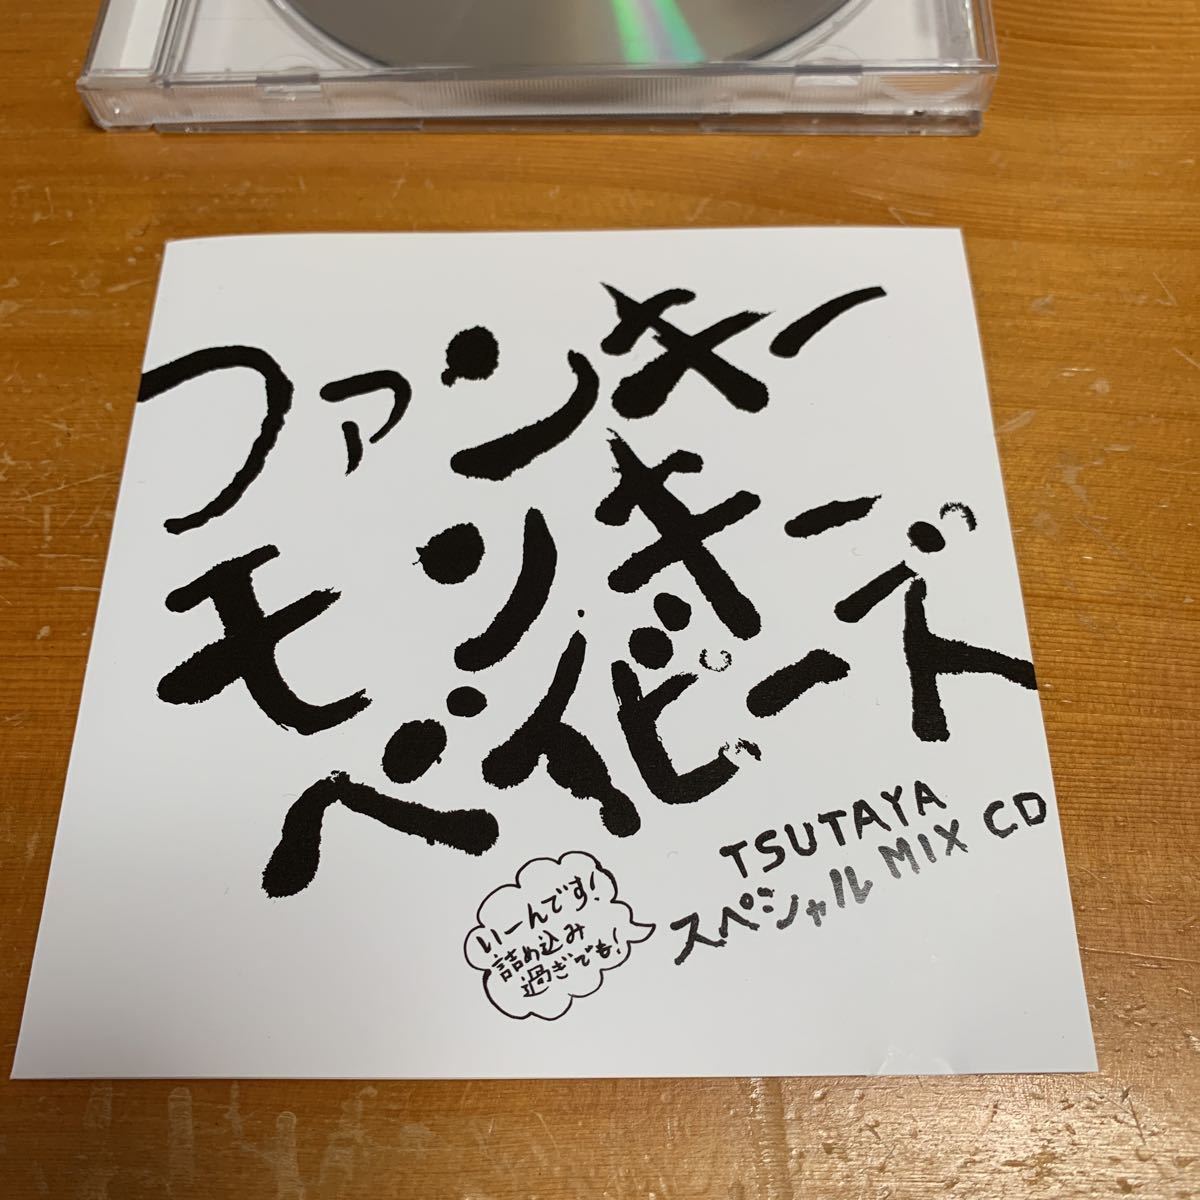 ファンキー
モンキー
ベイビーズ
TSUTAYA
スペシャル MIX CD
いーんです!
詰め込み
過ぎでも!